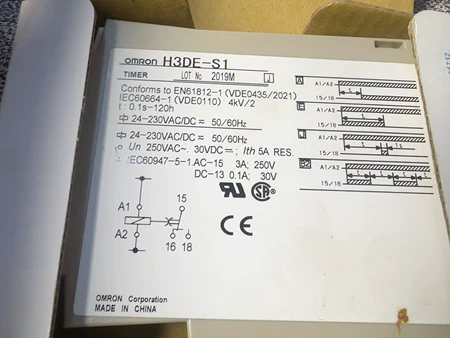 OMRON H3DE-S1
TIMER LOT No 2019M J
Conforms to EN61812-1 (VDE0435/2021)
IEC60664-1 (VDE0110) 4kV/2
t : 0.1s-120h
24-230VAC/DC ≂ 50/60Hz
24-230VAC/DC ≂ 50/60Hz
Un 250VAC~, 30VDC⎓; Ith 5A RES.
IEC60947-5-1.AC-15 3A; 250V
DC-13 0.1A; 30V
A
A1/A2
t
15/18
E
A1/A2
t
15/18
J
A1/A2
t 1s
15/18
B2
A1/A2
t t t
15/18
A1
A2
15
16 18
CE
OMRON Corporation
MADE IN CHINA